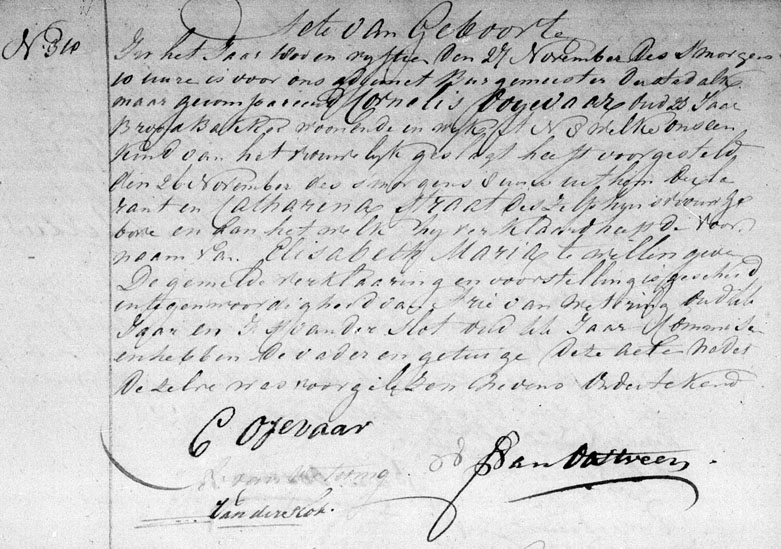 Acte van Geboorte
No. 310
In het Jaar 180 en vyftien Den 27 November des Smorgens
10 uure is voor ons adjunct Burgemeester De Stedalk
maar gecompareerd Cornelis Ooyevaar oud 23 Jaar
woonende in wyk No 8 welke ons een
Kind van het vrouwelyk geslagt heeft voorgesteld
den 26 November des smorgens 8 uure uit hem Decla
rant en Catharena Straat Deszelfs huysvrouw ge
bore en aan het welk hy verklaard heeft de voor
naam van Elisabeth Maria te willen geven
De gemelde verklaaring en voorstelling is geschied
in tegenwoordigheid van Arie van Wetering oud
Jaar en van der Slot oud Jaar
en hebben De vader en getuige Deze acte nadat
De zelve was voorgeleezen nevens Ondertekend
C Oyevaar
van Oostveen
van der Slot